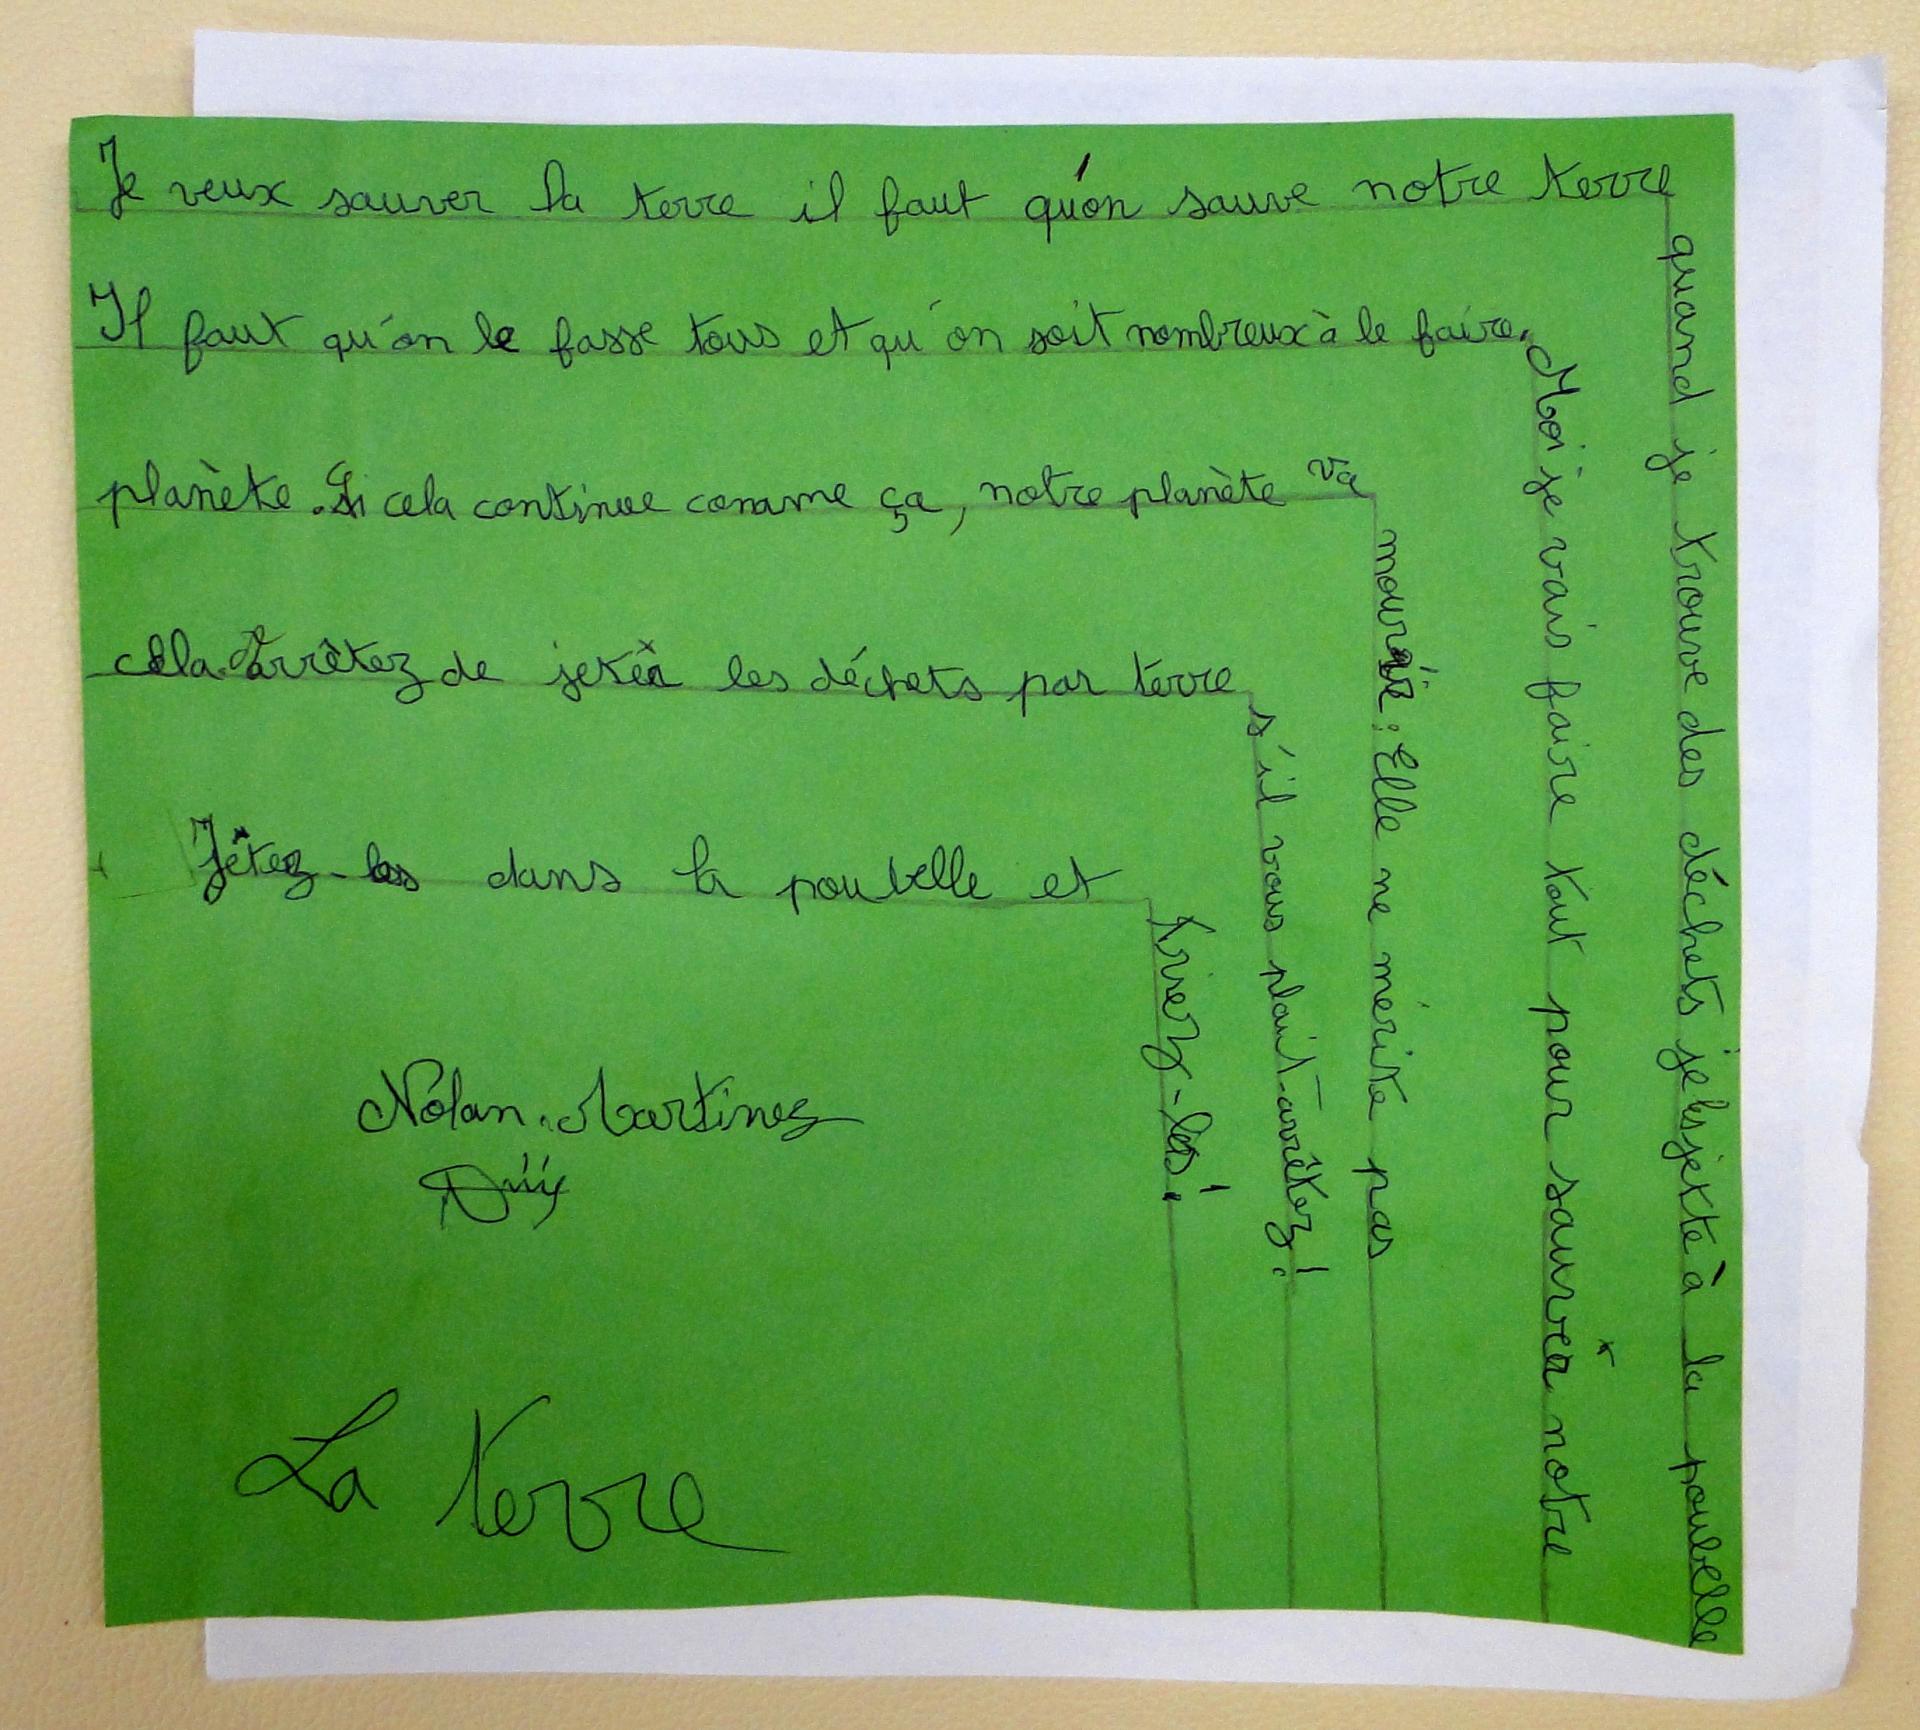 Je veux sauver la terre il faut qu'on sauve notre terre
quand je trouve des déchets je les jette à la poubelle
Il faut qu'on le fasse tous et qu'on soit nombreux à le faire.
Moi je vais faire tout pour sauver notre
planète. Si cela continue comme ça, notre planète va
mourir. Elle ne mérite pas
cela. Arrêtez de jeter les déchets par terre
s'il vous plait arrêtez !
Jêtez-les dans la poubelle et
triez-les !
Nolan Martinez
La terre